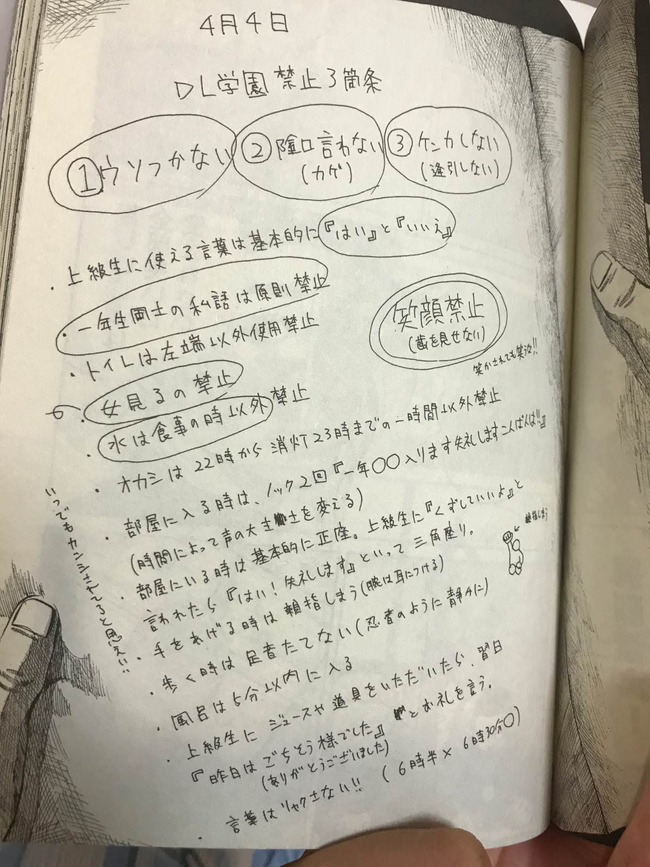 4月4日
DL学園 禁止3箇条
①ウソつかない ②陰口言わない ③ケンカしない
(カゲ) (逢引しない)
・上級生に使える言葉は基本的に『はい』と『いいえ』
・一年生同士の私語は原則禁止
笑顔禁止
(歯を見せない)
笑かされても笑うな!!
・トイレは左端以外使用禁止
・女見るの禁止
・水は食事の時以外禁止
・オカシは22時から消灯23時までの一時間以外禁止
・部屋に入る時は、ノック2回『一年〇〇入ります失礼しますこんばんは!!』
(時間によって声の大きさを変える)
・部屋にいる時は基本的に正座。上級生に『くずしていいよ』と
言われたら『はい!失礼します』といって三角座り。
・手をあげる時は親指しまう(腕は耳につける)
親指しまう
・歩く時は足音たてない(忍者のように静かに)
・風呂は5分以内に入る
・上級生にジュースや道具をいただいたら、翌日
『昨日はごちそう様でした』とお礼を言う。
(ありがとうございました)
・言葉はリャクさない!! (6時半× 6時30分〇)
いつでもカンシされてると思え!!